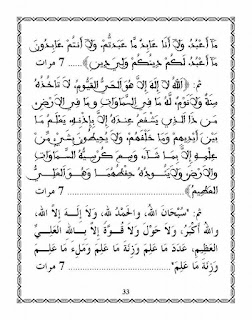 مَآ أَعْبُدُ، وَلَآ أَنَا عَابِدٌ مَّا عَبَدتُّمْ، وَلَآ أَنتُمْ عَابِدُونَ
مَآ أَعْبُدُ، لَكُمْ دِينُكُمْ وَلِيَ دِينِ﴾..... 7 مرات
ثم: ﴿اَللَّهُ لَآ إِلَهَ إِلاَّ هُوَ اَلْحَيُّ اَلْقَيُّومُ، لاَ تَاخُذُهُ
سِنَةٌ وَلاَ نَوْمٌ، لَّهُ مَا فِي اِلسَّمَاوَاتِ وَمَا فِي اِلاَرْضِ
مَن ذَا اَلَّذِي يَشْفَعُ عِندَهُ إِلاَّ بِإِذْنِهِ، يَعْلَمُ مَا
بَيْنَ أَيْدِيهِمْ وَمَا خَلْفَهُمْ، وَلاَ يُحِيطُونَ بِشَيْءٍ مِّنْ
عِلْمِهِ إِلاَّ بِمَا شَآءَ، وَسِعَ كُرْسِيُّهُ اُلسَّمَاوَاتِ
وَالاَرْضَ وَلاَ يَئُودُهُ حِفْظُهُمَا وَهُوَ اَلْعَلِيُّ
اَلْعَظِيمُ﴾.......... 7 مرات
ثم: "سُبْحَانَ اللهِ، وَالْحَمْدُ للهِ، وَلاَ إِلَـهَ إِلاَّ اللهُ،
وَاللهُ أَكْبَرُ، وَلاَ حَوْلَ وَلاَ قُوَّةَ إِلاَّ بِاللهِ الْعَلِيِّ
الْعَظِيمِ، عَدَدَ مَا عَلِمَ وَزِنَةَ مَا عَلِمَ وَمِلْءَ مَا عَلِمَ
وَزِنَةَ مَا عَلِمَ".......... 7 مرات
33